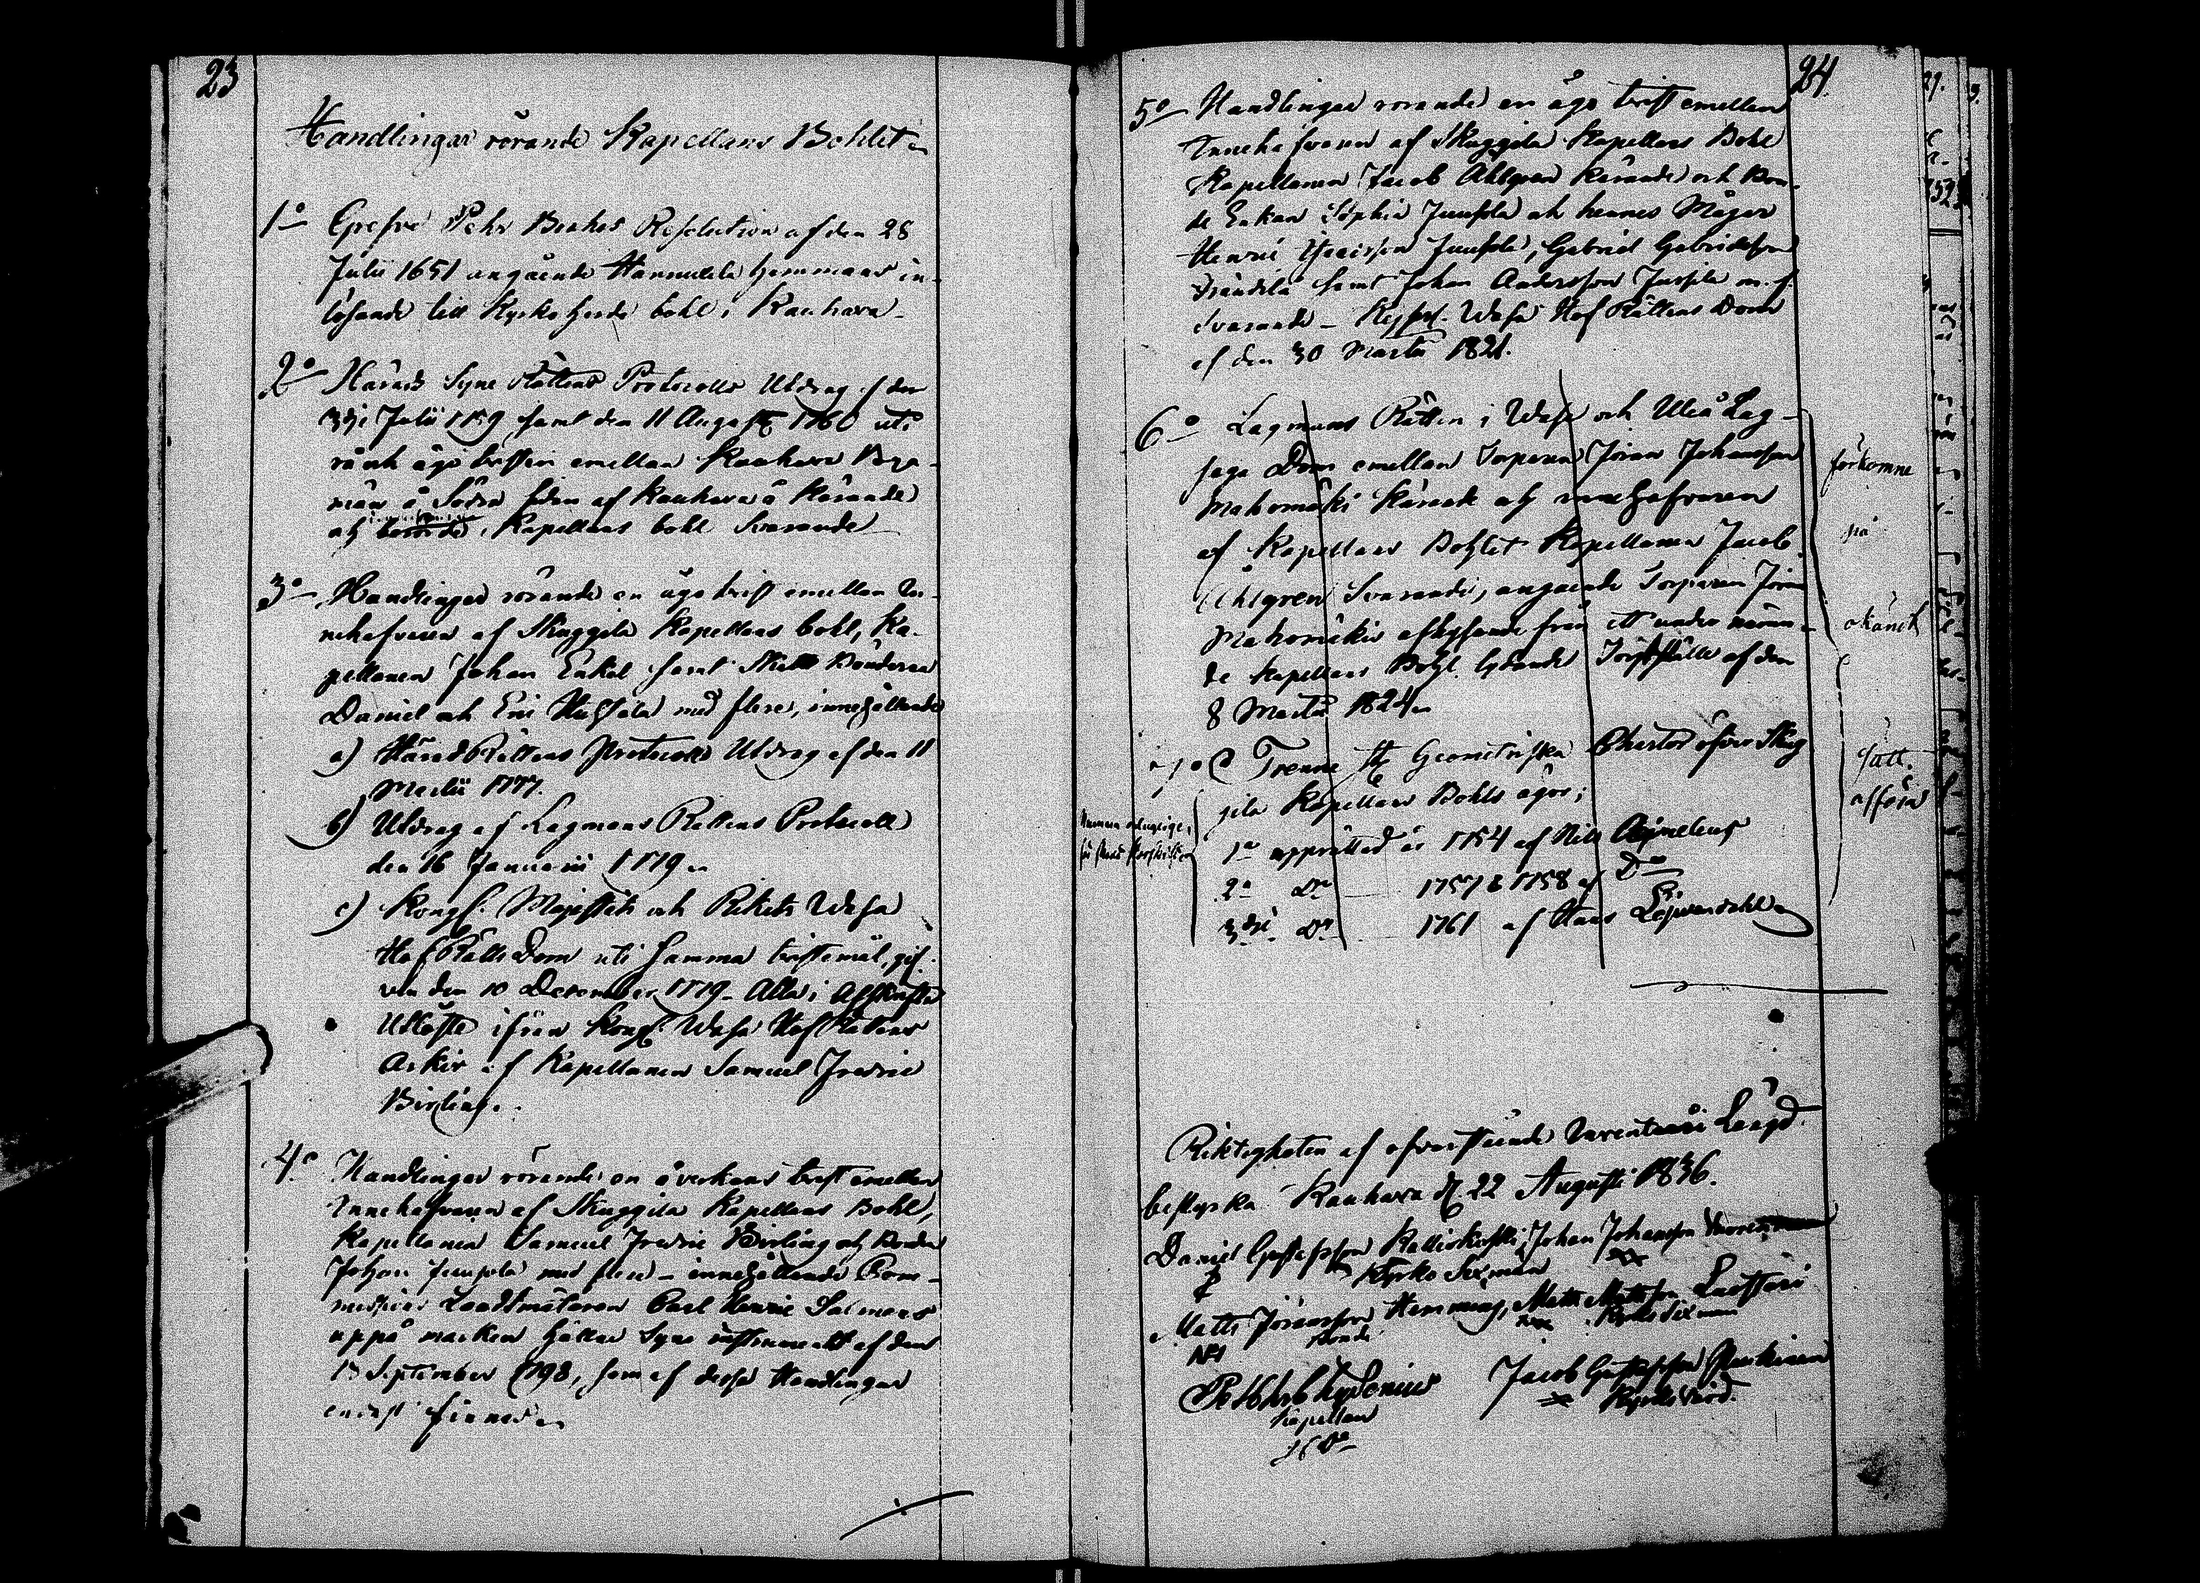 23
Handlingar rörande Kapellans Bohlet
1o Grefve Pehr Brahes Resolution af den 28
Julii 1651 angående Hannuksela hemmans in-
lösande till Kyrkoherde bohl i Kauhava
2o Härads Syne Rättens Protocolls Utdrag af den
3dje Julii 1759 samt den 11 Augusti 1760 uti
rå och ägo tvisten emellan Kauhava Bya-
män å Södra sidan af Kauhava å Kärande
och Kapellans bohl Svarande
3o Handlingar rörande en ägo tvist emellan In-
nehafvaren af Skuggila Kapellans bohl, Ka-
pellanen Johan Enkel samt Skatt Bönderna
Daniel och Eric med flere, innehållande
a) Härads Rättens Protocolls Utdrag af den 11
Martii 1777.
b) Utdrag af Lagmans Rättens Protocoll
den 16 Januarii 1779
c) Kongl. Majestäts och Rikets Wasa
Hof Rätts Dom uti samma tvistemål, gif-
ven den 10 December 1779 – Alla i Afskrifter
Utlöste ifrån Kongl. Wasa Hof Rättens
Arkiv af Kapellanen Samuel Fredric
Birling.
4o Handlingar rörande en åverkans tvist emellan
Innehafvaren af Skuggila Kapellans Bohl,
Kapellanen Samuel Fredric Birling och Bonden
Johan Juupola med flere – innehållande Com-
missions Landtmätaren Carl Henric
uppå marken hållne Syne instrument af den
13 September 1798, som af dessa Handlingar
endast finnes
24.
5o Handlingar rörande en ägo tvist emellan
Innehafvaren af Skuggila Kapellans Bohl
Kapellanen Jacob Ahlgren Kärande och Bon-
de Enkan Sophia Juupola och hennes Måger
Henric Juupola, Gabriel Gabrielsson
samt Johan Andersson m. f.
Svarande – Kejserl. Wasa Hof Rättens Dom
af den 30 Martii 1821.
6o Lagmans Rätten i Wasa och Uleå Lag-
saga Dom emellan Torparen Jöran Johansson
Mahomäki Kärande och innehafvaren
af Kapellans Bohlet Kapellanen Jacob
Ahlgren Svarande, angående Torparen Jöran
Mahomäkis afhysande från ett under nämn-
de Kapellans Bohl lydande Torpställe af den
8 Martii 1824
förkomne
på
okändt
sätt.
afföra
7o Trenne st. Geometriska Chartor öfver Skug
gila Kapellans Bohls ägor;
1o upprättad år 1754 af Nils
2o Do 1757 & 1758 af Do
3dje Do 1761 af Hans
Riktigheten af ofvanstående Inventarii Längd
bestyrka Kauhava d. 22 Augusti 1836.
Daniel Gustafsson Kalliokoski, Johan Johansson
Kyrko Sexman
Matts Jöransson Hemming, Matts Mattsson
Bonde Kyrko Sexman
Jacob Gustafsson
Kapellan Kyrko Värd.